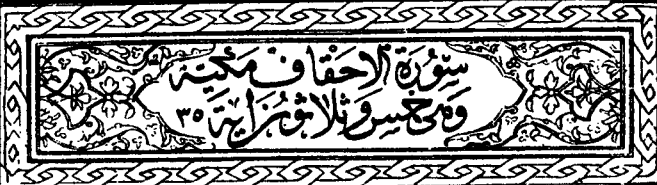 سُورَةُ الاَحْقَافِ مَكِّيَّة
وَهِيَ خَمْسٌ وَثَلَاثُونَ اٰيَة ٣٥